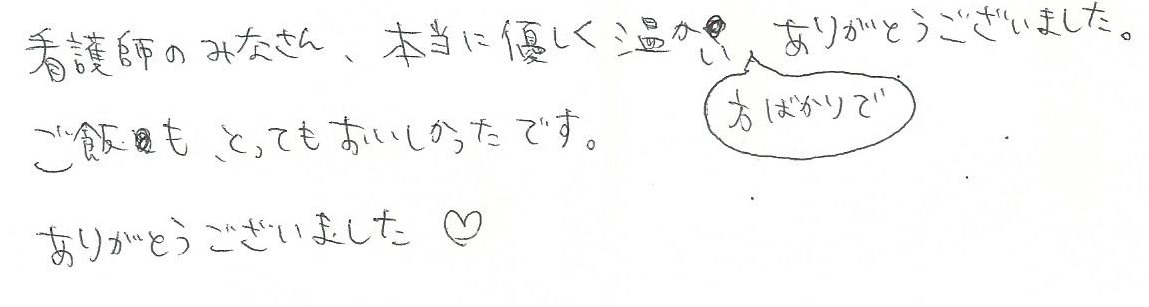 看護師のみなさん、本当に優しく温かい方ばかりで ありがとうございました。
ご飯も、とってもおいしかったです。
ありがとうございました♡